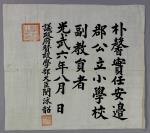 朴馨實任安邊
郡公立小學校
副教員者
光武六年八月 日
議政府贊政學部大臣閔泳韶